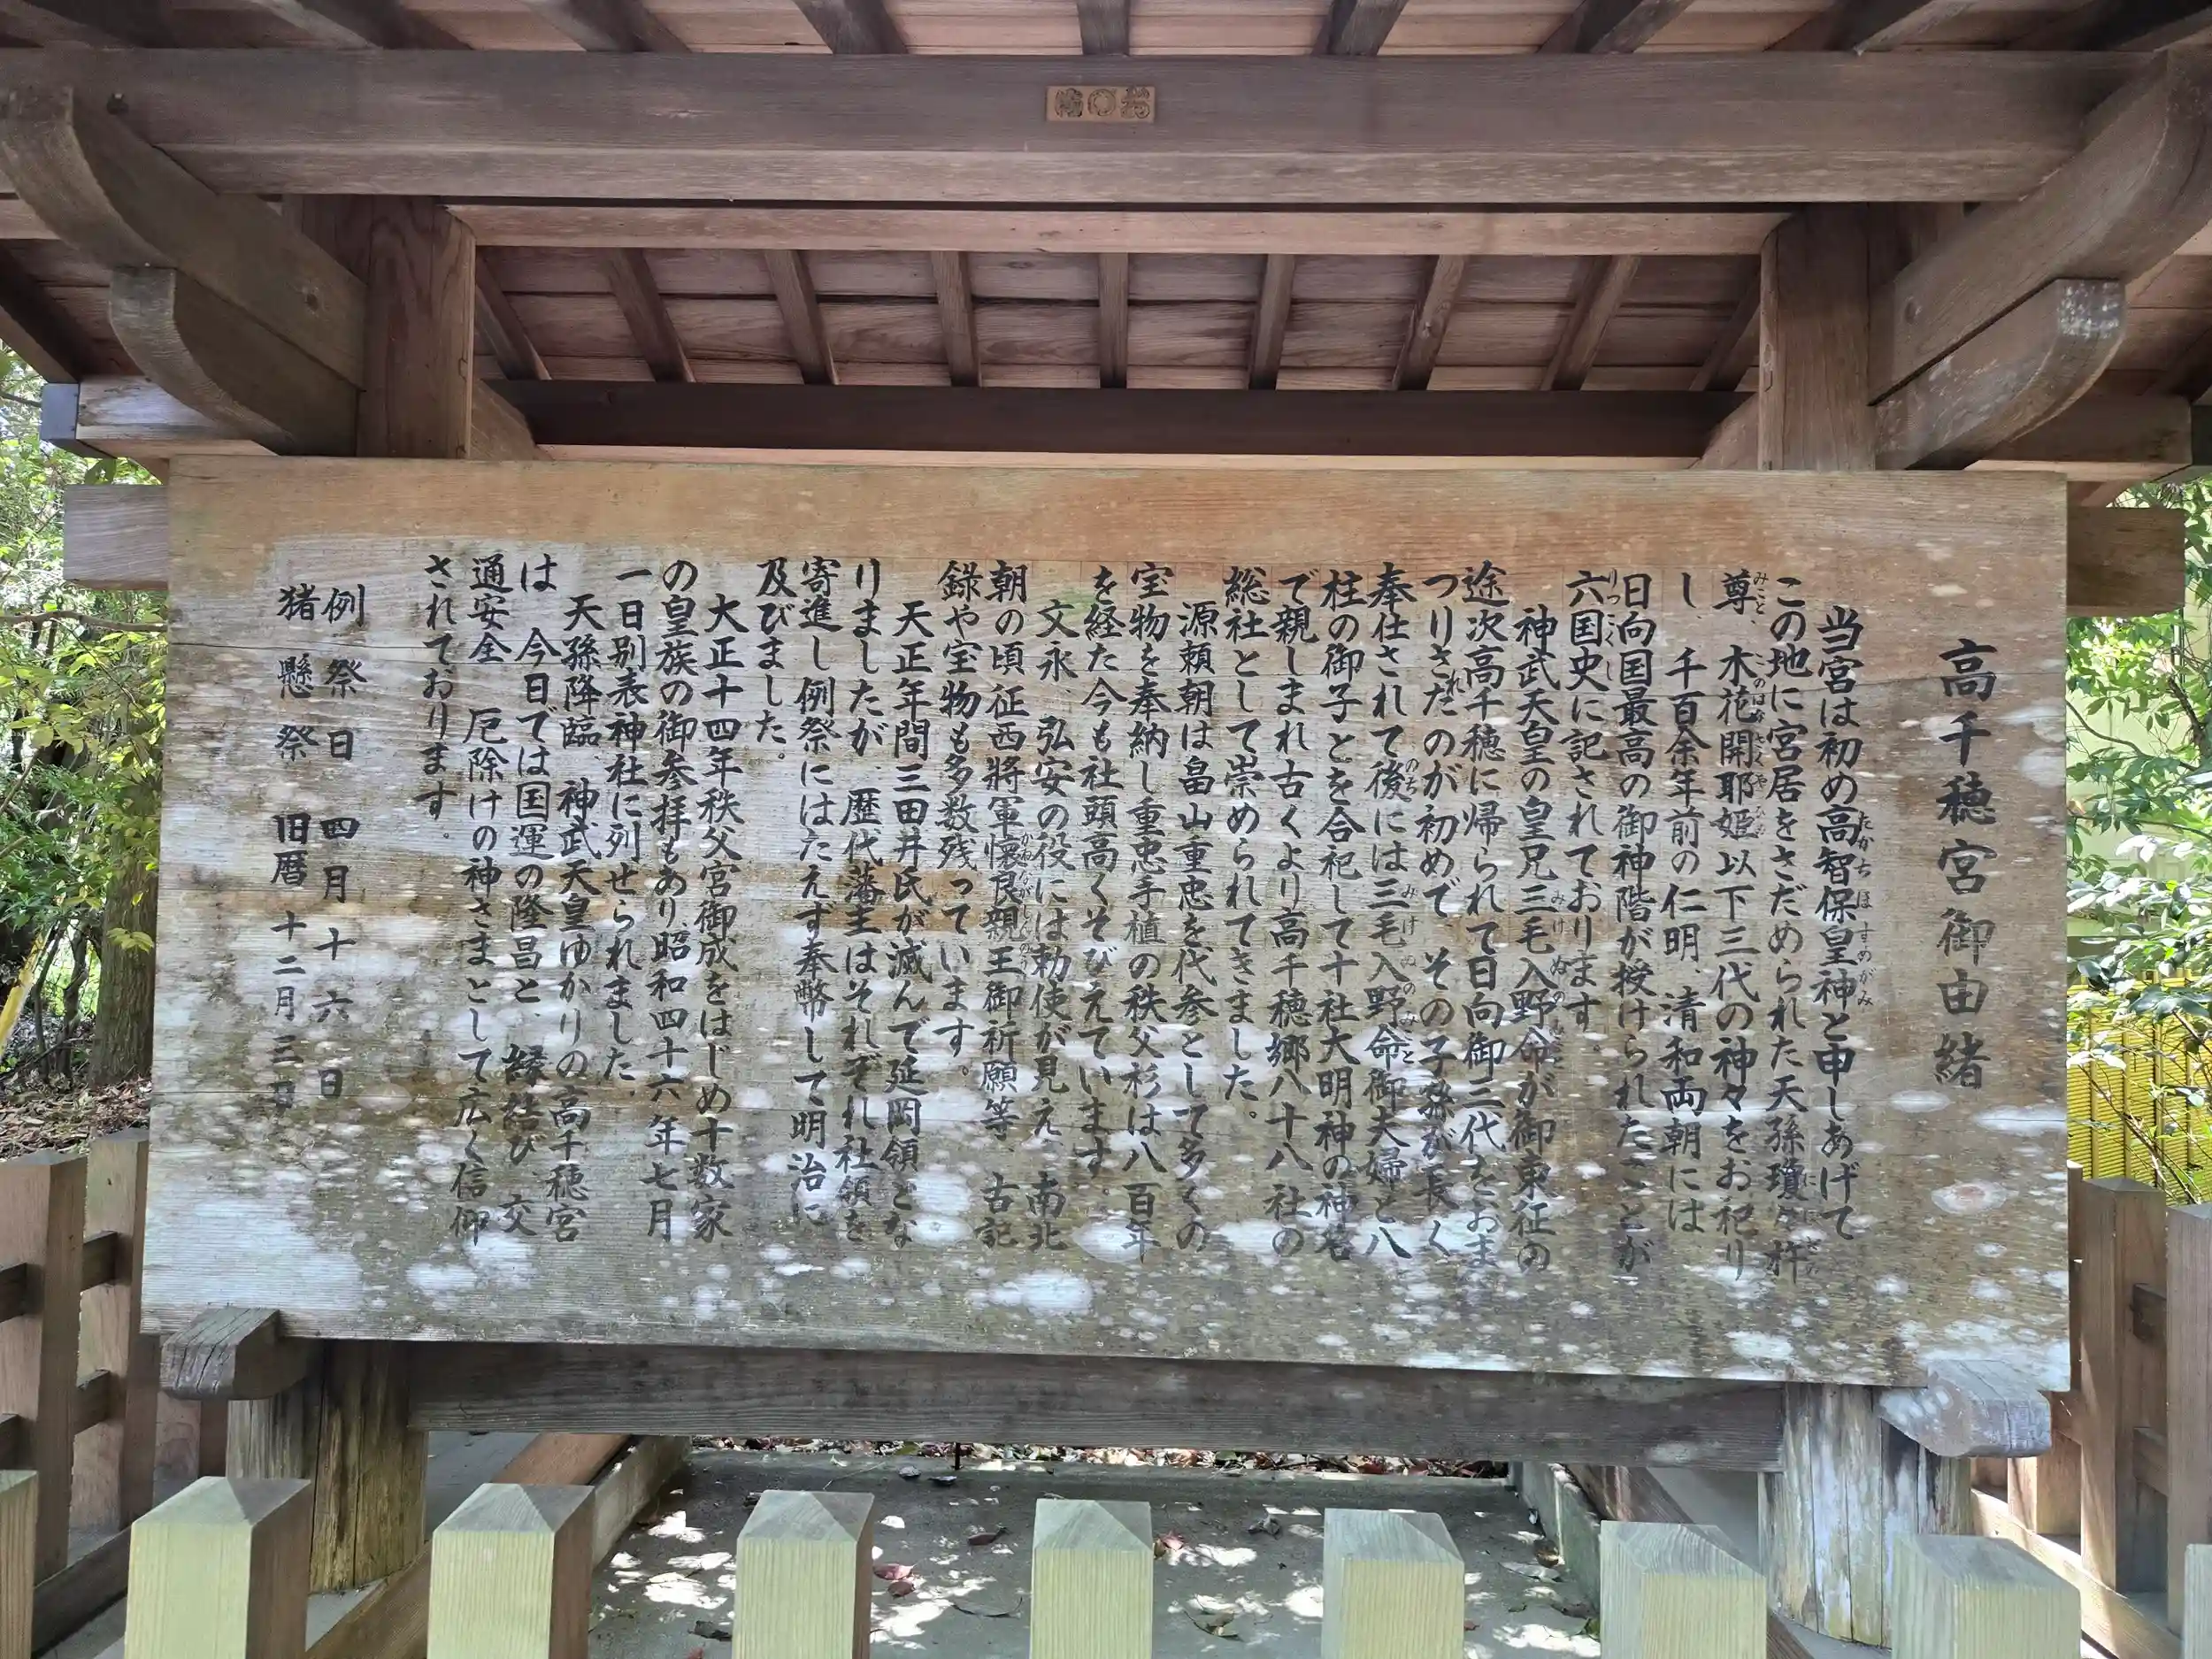 高千穂宮御由緒
当宮は初め高智保皇神と申しあげて
この地に宮居をさだめられた天孫瓊々杵
尊、木花開耶姫以下三代の神々をお祀り
し、千百余年前の仁明、清和両朝には
日向国最高の御神階が授けられたことが
六国史に記されております。
神武天皇の皇兄三毛入野命が御東征の
途次高千穂に帰られて日向御三代をおま
つりされたのが初めで、その子孫が長く
奉仕されて後には三毛入野命御夫婦と八
柱の御子とを合祀して十社大明神の神名
で親しまれ古くより高千穂郷八十八社の
総社として崇められてきました。
源頼朝は畠山重忠を代参として多くの
宝物を奉納し重忠手植の秩父杉は八百年
を経た今も社頭高くそびえています。
文永、弘安の役には勅使が見え、南北
朝の頃征西將軍懐良親王御祈願等、古記
録や宝物も多数残っています。
天正年間三田井氏が滅んで延岡領とな
りましたが、歴代藩主はそれぞれ社領を
寄進し例祭にはたえず奉幣して明治に
及びました。
大正十四年秩父宮御成をはじめ十数家
の皇族の御参拝もあり昭和四十六年七月
一日別表神社に列せられました。
天孫降臨、神武天皇ゆかりの高千穂宮
は 今日では国運の隆昌と、縁結び、交
通安全、厄除けの神さまとして広く信仰
されております。
例祭日 四月十六日
猪懸祭 旧暦十二月三日